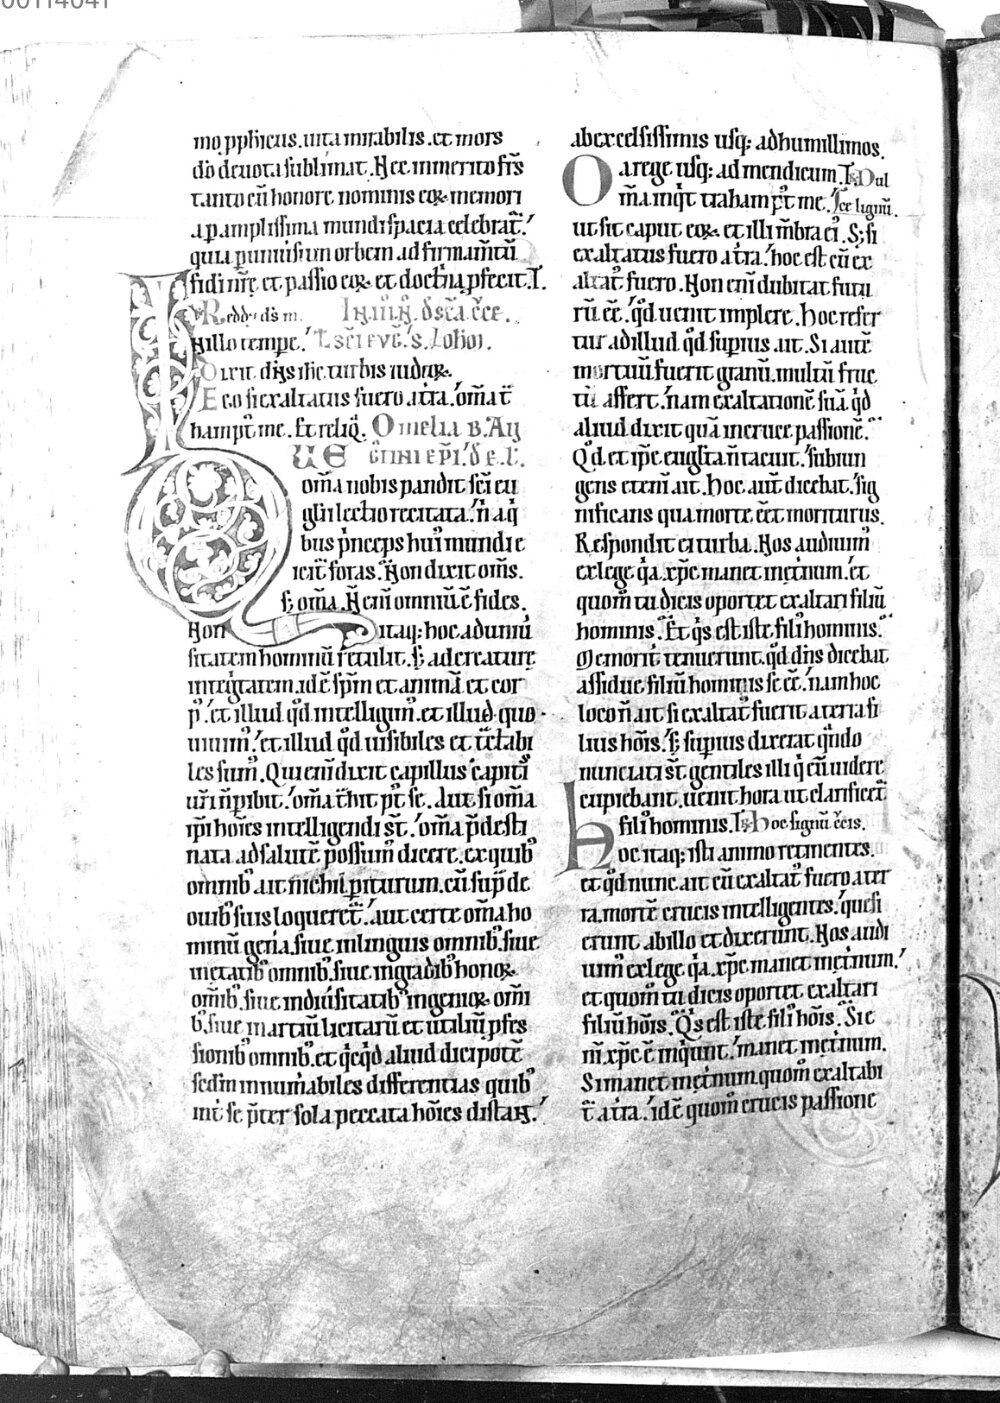 00114041
mo. pphicus. uita mirabilis. et mors
dō deuota sublimat. Nec inmerito fr̄s
tanto eū honore nominis eoꝝ memori
a p̱ amplissima mundi spacia celebrat̄.
quia puniuersum orbem ad firmam̄tū
fidi nr̄e. et passio eoꝝ et doct̄na pfecit. T.
IN illo tempr̄e.
Dixit dn̄s ih̄c. turbis iudeoꝝ.
Ego si exaltatus fuero a t̄ra. om̄a t̄
ham pt̄ me. Et reliq̄. Omelia b. Au
GU
Om̄a nobis pandit sc̄i eu
gl̄ii lectio recitata. n̄ a q̄
bus p̄nceps hui᷒ mundi e
icit̄ foras. Non dixit om̄s.
sꝫ om̄a. N̄ eni̅ omniū ē fides.
Non itaqꝫ hoc ad uniū
sitatem hominū retulit. sꝫ ad creature
integ̊tatem. idē sp̄m et animā et cor
p᷒. et illud qd̄ intelligim᷒. et illud quo
uiuim᷒. et illud qd̄ uisibiles et t̄ctabi
les sum᷒. Qui eni̅ dixit capillus capiti᷒
ur̄i n̄ pibit. om̄a t̄hit pt̄ se. Aut si om̄a
ip̄i hoīes intelligendi st̄. om̄a p̄desti
nata ad salutē possum᷒ dicere. ex quib᷒
omnib᷒ ait nichil pituram. cū sup̄ de
ouib᷒ suis loqueret̄. aut certe om̄a ho
minū gen̄a. siue in linguis omnib᷒. siue
in etatib᷒ omnib᷒. siue in g̊dib᷒ honoꝝ
om̄ib᷒. siue in diu̅sitatib᷒ ingenioꝝ om̄i
b᷒. siue in artiū licitarū et utiliū pfes
sionib᷒ omnib᷒. et qͥcqͥd aliud dici potē
secdm innum̄abiles differentias quib᷒
int̄ se p̄ter sola peccata hoīes distant.
ab excelsissimis usqꝫ ad humillimos.
O a rege usqꝫ ad mendicum.
m̄a inqͥt traham pt̄ me.
ut sit caput eoꝝ. et illi m̄bra ei᷒. Sꝫ si
exaltatus fuero a t̄ra. hoc est cū ex
altat᷒ fuero. Non eni̅ dubitat futu
rū eē. qd̄ uenit implere. Hoc refer
tur ad illud qd̄ superius ait. Si autē
mortuū fuerit granū. multū fruc
tū affert. nam exaltationē suā qͥd
aliud dixit quā in cruce passionē.
Qd̄ et ip̄e euglista n̄ tacuit. subiun
gens etenī ait. Hoc aut̄ dicebat. sig
nificans qua morte eēt moriturus.
Respondit ei turba. Nos audiuim᷒
ex lege. qͣa xp̄c manet in et̄num. et
quom̄ tu dicis oportet exaltari filiū
hominis. Et qͥs est iste fili᷒ hominis.
Memorit̄ tenuerunt. qd̄ dn̄s dicebat
assidue filiū hominis se eē. nam hoc
loco n̄ ait si exaltat᷒ fuerit a terra fi
lius hoīs. sꝫ superius dixerat qͣndo
nunciati st̄ gentiles illi qͥ eū uidere
cupiebant. uenit hora ut clarificet̄
fili᷒ hominis.
Hoc itaqꝫ isti animo retinentes.
et qd̄ nunc ait cū exaltat᷒ fuero a ter
ra. mortē crucis intelligentes. quesi
erunt ab illo et dixerunt. Nos audi
uim᷒ ex lege. qͣa xp̄c manet in et̄num.
et quom̄ tu dicis oportet exaltari
filiū hoīs. Qͥs est iste fili᷒ hoīs. Si e
ni̅ xp̄c ē inquiunt. manet in et̄num.
Si manet in et̄num quom̄ exaltabi
t̄ a t̄ra. idē quom̄ crucis passione